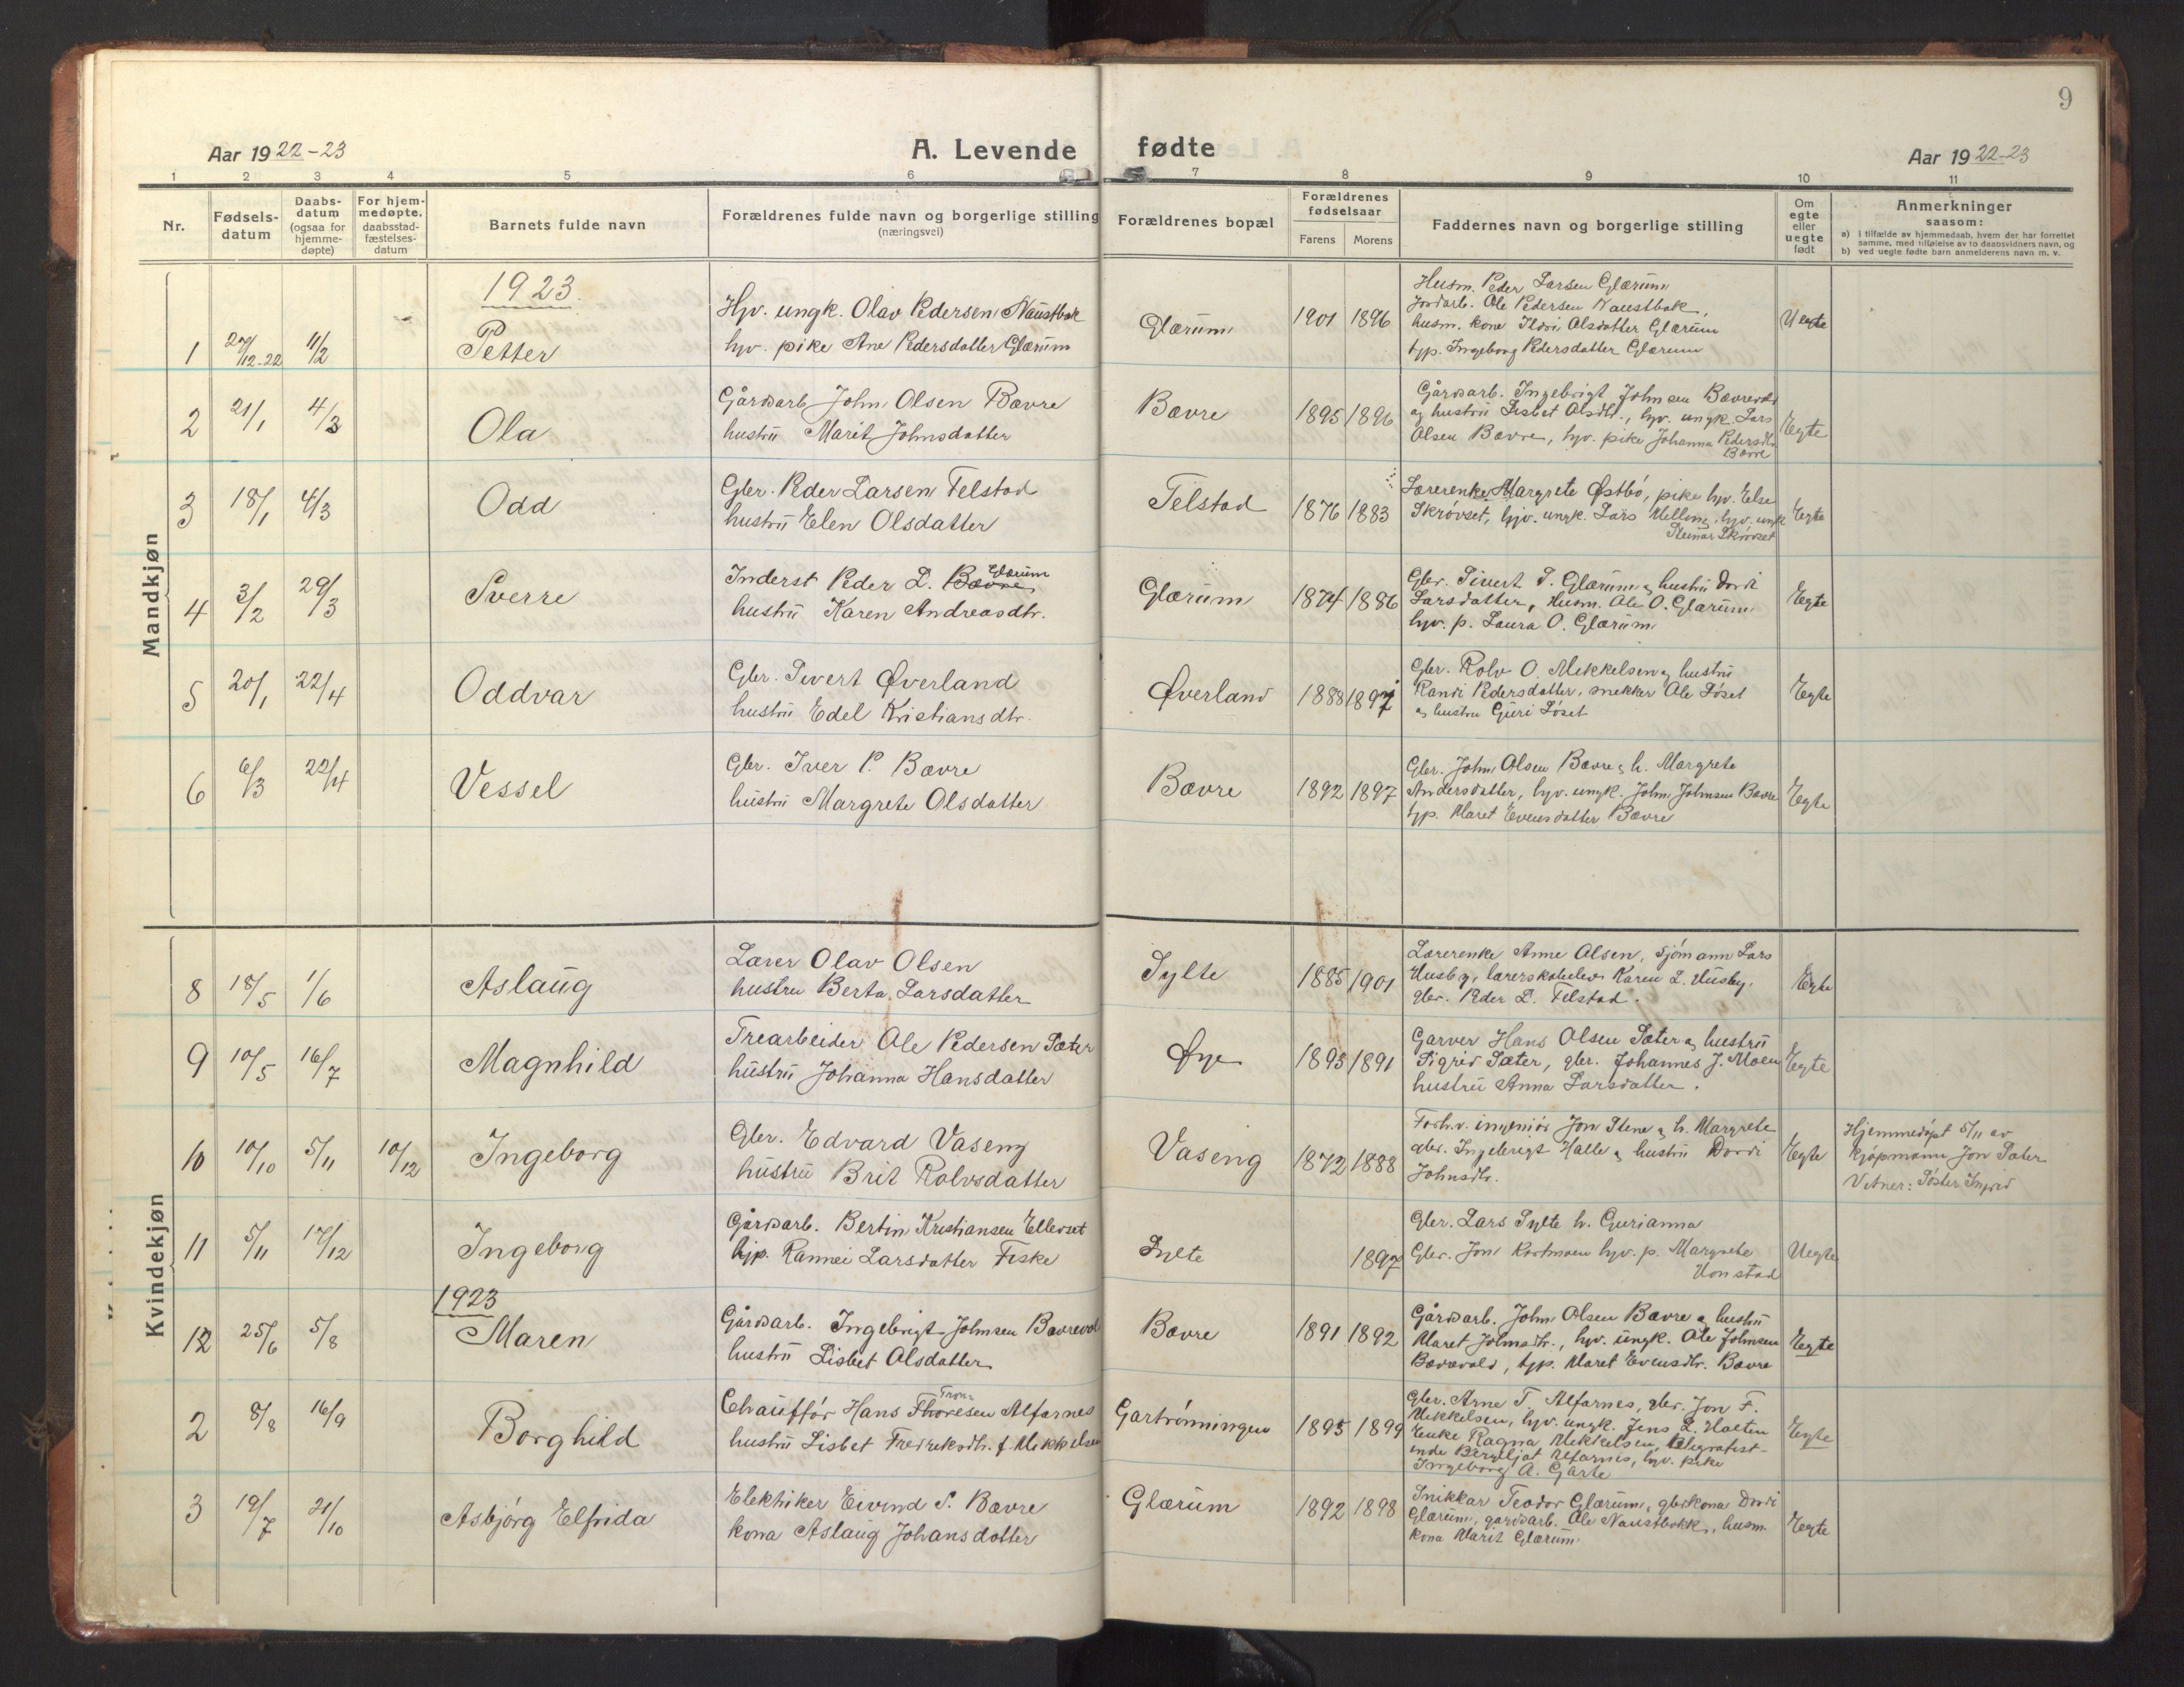 9
Aar 1922-23
A. Levende fødte
Aar 1922-23
1 2 3 4 5 6 7 8 9 10 11
Nr.
Fødsels-
datum
Daabs-
datum
(ogsaa for
hjemme-
døpte)
For hjem-
medøpte,
daabsstad-
fæstelses-
datum
Barnets fulde navn
Forældrenes fulde navn og borgerlige stilling
(næringsvei)
Forældrenes bopæl
Forældrenes
fødselsaar
Farens Morens
Faddernes navn og borgerlige stilling
Om
egte
eller
uegte
født
Anmerkninger
saasom:
a) i tilfælde av hjemmedaab, hvem der har forrettet
samme, med tilføielse av to daabsvidners navn, og
b) ved uegte fødte barn anmelderens navn m. v.
Mandkjøn
1923.
1 27/12-22 11/2 Petter
Hjv. ungk. Olav Pedersen Naustbak
hjv. pike Ane Pedersdatter Glærum
Glærum 1901 1896
Husm. Peder Larsen Glærum
Jordarb. Ole Pedersen Naustbak,
husm. kone Ildri Olsdatter Glærum
tjp. Ingeborg Pedersdatter Glærum
Uegte
2 21/1 4/3 Ola
Gårdsarb John Olsen Bævre
hustru Marit Johnsdatter
Bævre 1895 1896
Gårdsarb. Ingebrigt Johnsen Bævrevold
og hustru Lisbet Olsdtr., hjv. ungk. Lars
Olsen Bævre, hjv. pike Johanna Pedersdtr
Bævre
Egte
3 18/1 4/3 Odd
Gbr. Peder Larsen Telstad
hustru Elen Olsdatter
Telstad 1876 1883
Lærerenke Margrete Østbö, pike hjv. Else
Skrövset, hjv. ungk. Lars Melling, hjv. ungk
Steinar Skrövset
Egte
4 3/2 29/3 Sverre
Glærum
Inderst Peder L. Bævre
hustru Karen Andreasdtr.
Glærum 1874 1886
Gbr. Sivert S. Glærum og hustru Dordi
Larsdatter, Husm. Ole O. Glærum
hjv. p. Laura O. Glærum
Egte
5 20/1 22/4 Oddvar
Gbr. Sivert Øverland
hustru Edel Kristiansdtr.
Øverland 1888 1897
Gbr. Rolv O. Mekkelsen og hustru
Randi Pedersdatter, snekker Ole Löset
og hustru Guri Löset
Egte
6 6/3 22/4 Vessel
Gbr. Iver P. Bævre
hustru Margrete Olsdatter
Bævre 1892 1897
Gbr. John Olsen Bævre og h. Margrete
Andersdatter, hjv. ungk. John Johnsen Bævre
tjp. Maret Evensdatter Bævre
Egte
Kvindekjøn
8 18/5 1/6 Aslaug
Lærer Olav Olsen
hustru Berta Larsdatter
Sylte 1885 1901
Lærerenke Anne Olsen, Sjömann Lars
Husby, lærerskoleelev Karen L. Husby,
gbr. Peder L. Telstad.
Egte
9 10/5 16/7 Magnhild
Trearbeider Ole Pedersen Sæter
hustru Johanna Hansdatter
Øye 1893 1891
Garver Hans Olsen Sæter og hustru
Sigrid Sæter, gbr. Johannes J. Moen
hustru Anna Larsdatter.
Egte
10 10/10 5/11 10/12 Ingeborg
Gbr. Edvard Vaseng
hustru Brit Rolvsdatter
Vaseng 1872 1888
Forh.v. ingeniör Jon Stene og h. Margrete
gbr. Ingebrigt Halle og hustru Dordi
Johnsdtr.
Egte
Hjemmedöpt 5/11 av
kjöpmann Jon Sæter
Vitner: Söster Ingrid
11 5/11 17/12 Ingeborg
Gårdsarb. Bertin Kristiansen Ellevset
tjp. Rannei Larsdatter Fiske
Sylte 1897
Gbr. Lars Sylte h. Gurianna
Gbr. Jon Kortmoen hjv. p. Margrete
Vonstad
Uegte
1923
12 25/6 5/8 Maren
Gårdsarb. Ingebrigt Johnsen Bævrevold
hustru Lisbet Olsdatter
Bævre 1891 1892
Gårdsarb. John Olsen Bævre og hustru
Maret Johnsdtr., hjv. ungk. Ole Johnsen
Bævrevold, tjp. Maret Evensdtr. Bævre
Egte
2 8/8 16/9 Borghild
Chauffør Hans Thoresen Alfarnes
hustru Lisbet Fredriksdtr. f. Mekkelsen
Gartrönningen 1895 1899
Gbr. Arne T. Alfarnes, gbr. Jon F.
Mekkelsen, hjv. ungk. Jens L. Moeten
Enke Ragna Mekkelsen, telegrafist-
inde Bergljot Alfarnes, hjv. pike
Ingeborg A. Garte
Egte
3 19/7 21/10 Asbjörg Elfrida
Elektriker Eivind S. Bævre
kona Aslaug Johansdotter
Glærum 1892 1898
Snikkar Teodor Glærum, gbrkona Dordi
Glærum, gardsarb. Ole Naustbakk, husm.
kona Marit Glærum
Egte